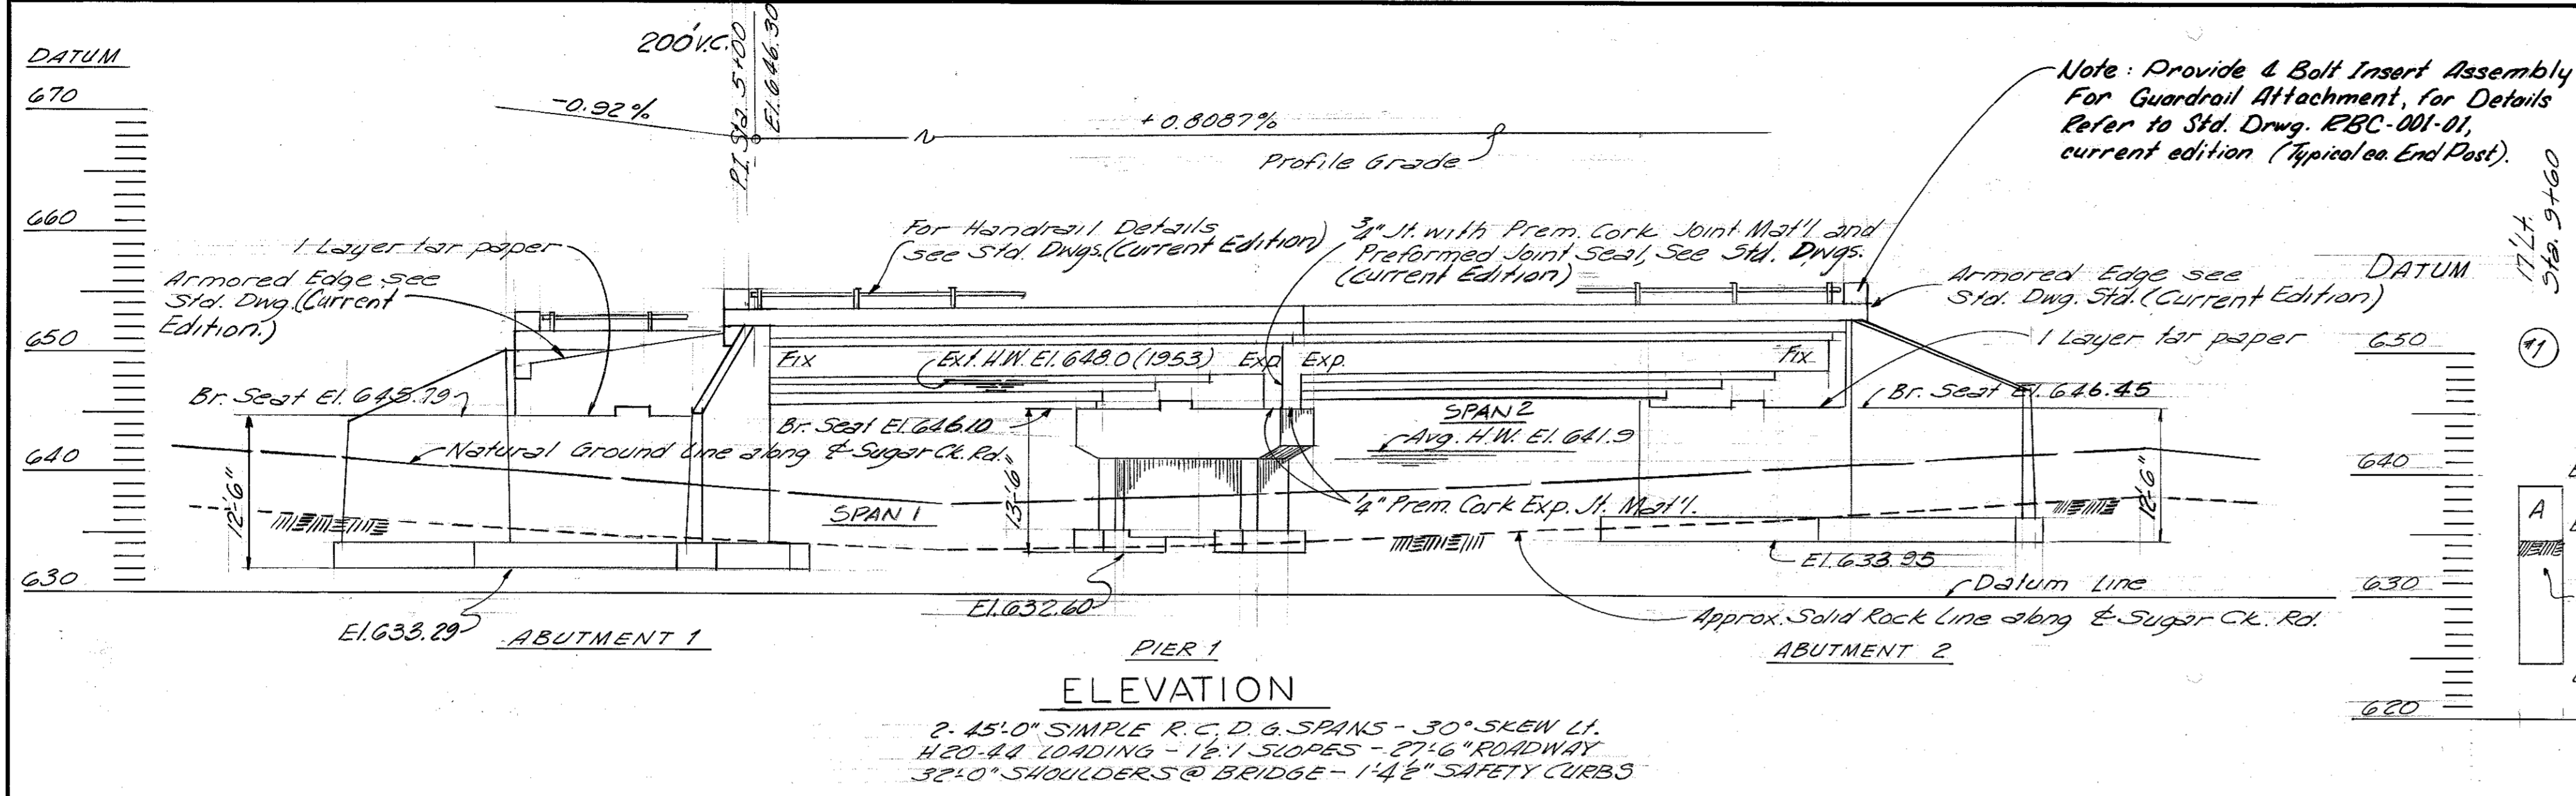 DATUM
670
660
650
640
630
200' V.C.
P.I. Sta. 5+00
El. 646.30
-0.92%
+0.8087%
Profile Grade
Note: Provide 4 Bolt Insert Assembly
For Guardrail Attachment, for Details
Refer to Std. Drwg. RBC-001-01,
current edition (Typical ea. End Post).
17' Lt.
Sta. 9+60
#1
1 Layer tar paper
Armored Edge see
Std. Dwg. (Current
Edition.)
For Handrail Details
see Std. Dwgs. (Current Edition)
3/4" Jt. with Prem. Cork Joint Mat'l and
Preformed Joint Seal, See Std. Dwgs.
(Current Edition)
Armored Edge see
Std. Dwg. Std. (Current Edition)
1 Layer tar paper
DATUM
650
640
630
620
Fix
Ext. H.W. El. 648.0 (1953)
Exp.
Exp.
Fix
Br. Seat El. 645.79
Br. Seat El. 646.10
SPAN 2
Br. Seat El. 646.45
Avg. H.W. El. 641.9
Natural Ground Line along ℄ Sugar Ck. Rd.
12'-6"
SPAN 1
13'-6"
1/4" Prem. Cork Exp. Jt. Mat'l.
12'-6"
A
El. 633.95
Datum Line
El. 632.60
Approx. Solid Rock Line along ℄ Sugar Ck. Rd.
El. 633.29
ABUTMENT 1
PIER 1
ABUTMENT 2
ELEVATION
2-45'-0" SIMPLE R.C.D.G. SPANS - 30° SKEW Lt.
H20-44 LOADING - 1½:1 SLOPES - 27'-6" ROADWAY
32'-0" SHOULDERS @ BRIDGE - 1'-4½" SAFETY CURBS